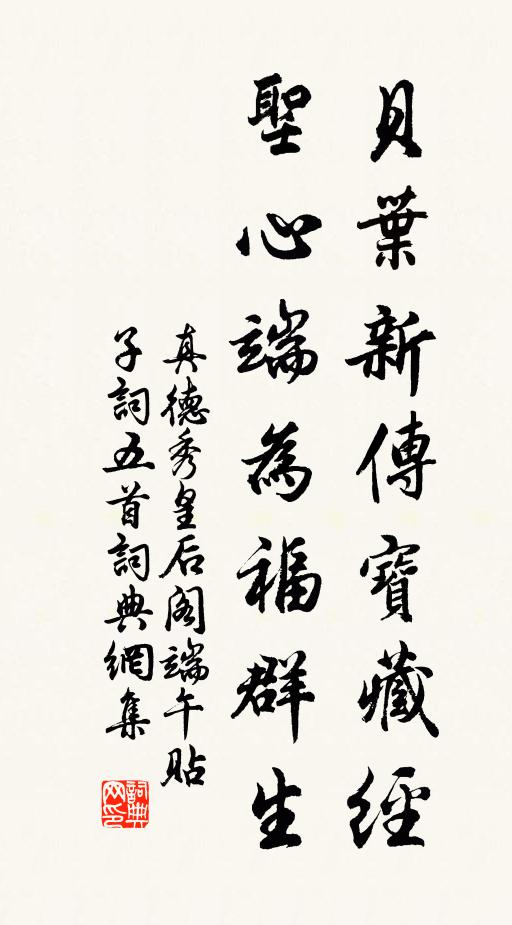 貝葉新傳寶藏經
聖心端為福群生
真德秀皇后阁端午貼
子詞五首詞典網集
詞典网印